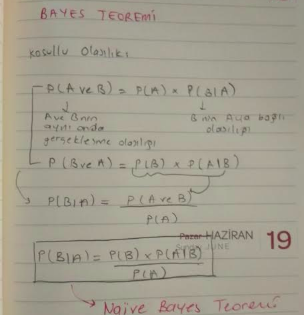 BAYES TEOREMİ
Koşullu Olasılık
P(A ve B) = P(A) x P(B|A)
A ve B nin aynı anda gerçekleşme olasılığı
B nin A ya bağlı olasılığı
P(B ve A) = P(B) x P(A|B)
P(B|A) = P(A ve B) / P(A)
Pazar HAZİRAN 19
Sunday JUNE
P(B|A) = P(B) x P(A|B) / P(A)
Naive Bayes Teoremi